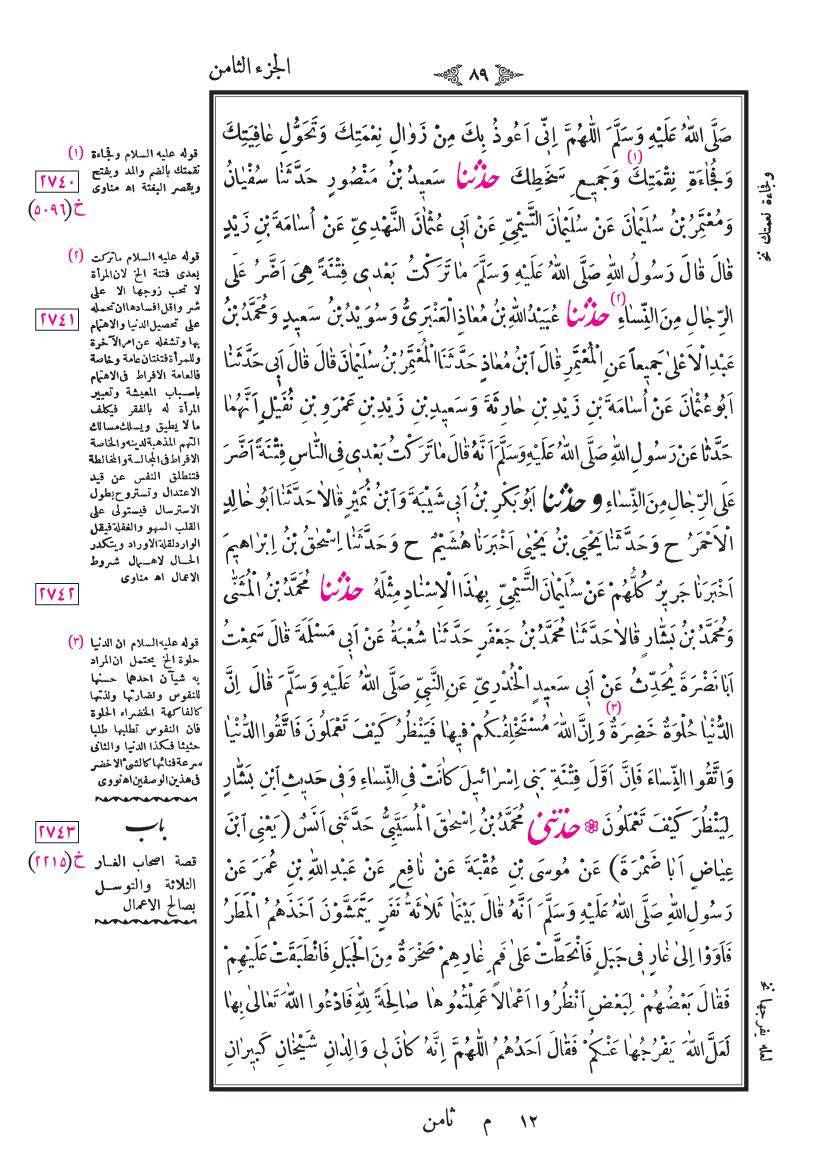 الجزء الثامن
٨٩
صَلَّى اللهُ عَلَيْهِ وَسَلَّمَ اَللّٰهُمَّ اِنِّى اَعُوذُ بِكَ مِنْ زَوَالِ نِعْمَتِكَ وَتَحَوُّلِ عَافِيَتِكَ
وَفُجَاءَةِ نِقْمَتِكَ (١) وَجَمِيعِ سَخَطِكَ حَدَّثَنَا سَعِيدُ بْنُ مَنْصُورٍ حَدَّثَنَا سُفْيَانُ
وَمُعْتَمِرُ بْنُ سُلَيْمَانَ عَنْ سُلَيْمَانَ التَّيْمِيِّ عَنْ اَبِى عُثْمَانَ النَّهْدِيِّ عَنْ اُسَامَةَ بْنِ زَيْدٍ
قَالَ قَالَ رَسُولُ اللهِ صَلَّى اللهُ عَلَيْهِ وَسَلَّمَ مَا تَرَكْتُ بَعْدِى فِتْنَةً هِىَ اَضَرُّ عَلَى
الرِّجَالِ مِنَ النِّسَاءِ (٢) حَدَّثَنَا عُبَيْدُ اللهِ بْنُ مُعَاذٍ الْعَنْبَرِىُّ وَسُوَيْدُ بْنُ سَعِيدٍ وَمُحَمَّدُ بْنُ
عَبْدِ الْاَعْلىٰ جَمِيعاً عَنِ الْمُعْتَمِرِ قَالَ ابْنُ مُعَاذٍ حَدَّثَنَا الْمُعْتَمِرُ بْنُ سُلَيْمَانَ قَالَ قَالَ اَبِى حَدَّثَنَا
اَبُو عُثْمَانَ عَنْ اُسَامَةَ بْنِ زَيْدِ بْنِ حَارِثَةَ وَسَعِيدِ بْنِ زَيْدِ بْنِ عَمْرِو بْنِ نُفَيْلٍ اَنَّهُمَا
حَدَّثَا عَنْ رَسُولِ اللهِ صَلَّى اللهُ عَلَيْهِ وَسَلَّمَ اَنَّهُ قَالَ مَا تَرَكْتُ بَعْدِى فِى النَّاسِ فِتْنَةً اَضَرَّ
عَلَى الرِّجَالِ مِنَ النِّسَاءِ وَحَدَّثَنَا اَبُو بَكْرِ بْنُ اَبِى شَيْبَةَ وَابْنُ نُمَيْرٍ قَالَا حَدَّثَنَا اَبُو خَالِدٍ
الْاَحْمَرُ ح وَحَدَّثَنَا يَحْيَى بْنُ يَحْيٰى اَخْبَرَنَا هُشَيْمٌ ح وَحَدَّثَنَا اِسْحٰقُ بْنُ اِبْرَاهِيمَ
اَخْبَرَنَا جَرِيرٌ كُلُّهُمْ عَنْ سُلَيْمَانَ التَّيْمِيِّ بِهٰذَا الْاِسْنَادِ مِثْلَهُ حَدَّثَنَا مُحَمَّدُ بْنُ الْمُثَنّٰى
وَمُحَمَّدُ بْنُ بَشَّارٍ قَالَا حَدَّثَنَا مُحَمَّدُ بْنُ جَعْفَرٍ حَدَّثَنَا شُعْبَةُ عَنْ اَبِى مَسْلَمَةَ قَالَ سَمِعْتُ
اَبَا نَضْرَةَ يُحَدِّثُ عَنْ اَبِى سَعِيدٍ الْخُدْرِىِّ عَنِ النَّبِيِّ صَلَّى اللهُ عَلَيْهِ وَسَلَّمَ قَالَ اِنَّ
الدُّنْيَا حُلْوَةٌ خَضِرَةٌ (٣) وَاِنَّ اللهَ مُسْتَخْلِفُكُمْ فِيهَا فَيَنْظُرُ كَيْفَ تَعْمَلُونَ فَاتَّقُوا الدُّنْيَا
وَاتَّقُوا النِّسَاءَ فَاِنَّ اَوَّلَ فِتْنَةِ بَنِى اِسْرَائِيلَ كَانَتْ فِى النِّسَاءِ وَفِى حَدِيثِ ابْنِ بَشَّارٍ
لِيَنْظُرَ كَيْفَ تَعْمَلُونَ ❁ حَدَّثَنِى مُحَمَّدُ بْنُ اِسْحٰقَ الْمُسَيَّبِىُّ حَدَّثَنِى اَنَسٌ (يَعْنِى ابْنَ
عِيَاضٍ اَبَا ضَمْرَةَ) عَنْ مُوسَى بْنِ عُقْبَةَ عَنْ نَافِعٍ عَنْ عَبْدِ اللهِ بْنِ عُمَرَ عَنْ
رَسُولِ اللهِ صَلَّى اللهُ عَلَيْهِ وَسَلَّمَ اَنَّهُ قَالَ بَيْنَمَا ثَلَاثَةُ نَفَرٍ يَتَمَشَّوْنَ اَخَذَهُمُ الْمَطَرُ
فَاَوَوْا اِلىٰ غَارٍ فِى جَبَلٍ فَانْحَطَّتْ عَلىٰ فَمِ غَارِهِمْ صَخْرَةٌ مِنَ الْجَبَلِ فَانْطَبَقَتْ عَلَيْهِمْ
فَقَالَ بَعْضُهُمْ لِبَعْضٍ انْظُرُوا اَعْمَالاً عَمِلْتُمُوهَا صَالِحَةً لِلّٰهِ فَادْعُوا اللهَ تَعَالىٰ بِهَا
لَعَلَّ اللهَ يَفْرُجُهَا عَنْكُمْ فَقَالَ اَحَدُهُمُ اللّٰهُمَّ اِنَّهُ كَانَ لِى وَالِدَانِ شَيْخَانِ كَبِيرَانِ
(١) قوله عليه السلام وفجاءة
نقمتك بالضم والمد وبفتح
ويقصر البغتة اه مناوى
٢٧٤٠
خ(٥٠٩٦)
(٢) قوله عليه السلام ماتركت
بعدى فتنة الخ لان المرأة
لا تحب زوجها الا على
شر واقل افسادها ان تحمله
على تحصيل الدنيا والاهتمام
بها وتشغله عن امر الآخرة
وللمرأة فتنتان عامة وخاصة
فالعامة الافراط فى الاهتمام
باسباب المعيشة وتعيير
المرأة له بالفقر فيكلف
مالا يطيق ويسلك مسالك
التهم المذهبة لدينه والخاصة
الافراط فى المجالسة والمخالطة
فتنطلق النفس عن قيد
الاعتدال وتستروح بطول
الاسترسال فيستولى على
القلب السهو والغفلة فيقل
الوارد لقلة الاوراد ويتكدر
الحال لاهمال شروط
الاعمال اه مناوى
٢٧٤١
٢٧٤٢
(٣) قوله عليه السلام ان الدنيا
حلوة الخ يحتمل ان المراد
به شيآن احدهما حسنها
للنفوس ونضارتها ولذتها
كالفاكهة الخضراء الحلوة
فان النفوس تطلبها طلبا
حثيثا فكذا الدنيا والثانى
سرعة فنائها كالشئ الاخضر
فى هذين الوصفين اه نووى
باب
٢٧٤٣
خ(٢٢١٥)
قصة اصحاب الغار
الثلاثة والتوسل
بصالح الاعمال
وفجاءة نقمتك نخ
لعله يفرجها نخ
١٢ م ثامن